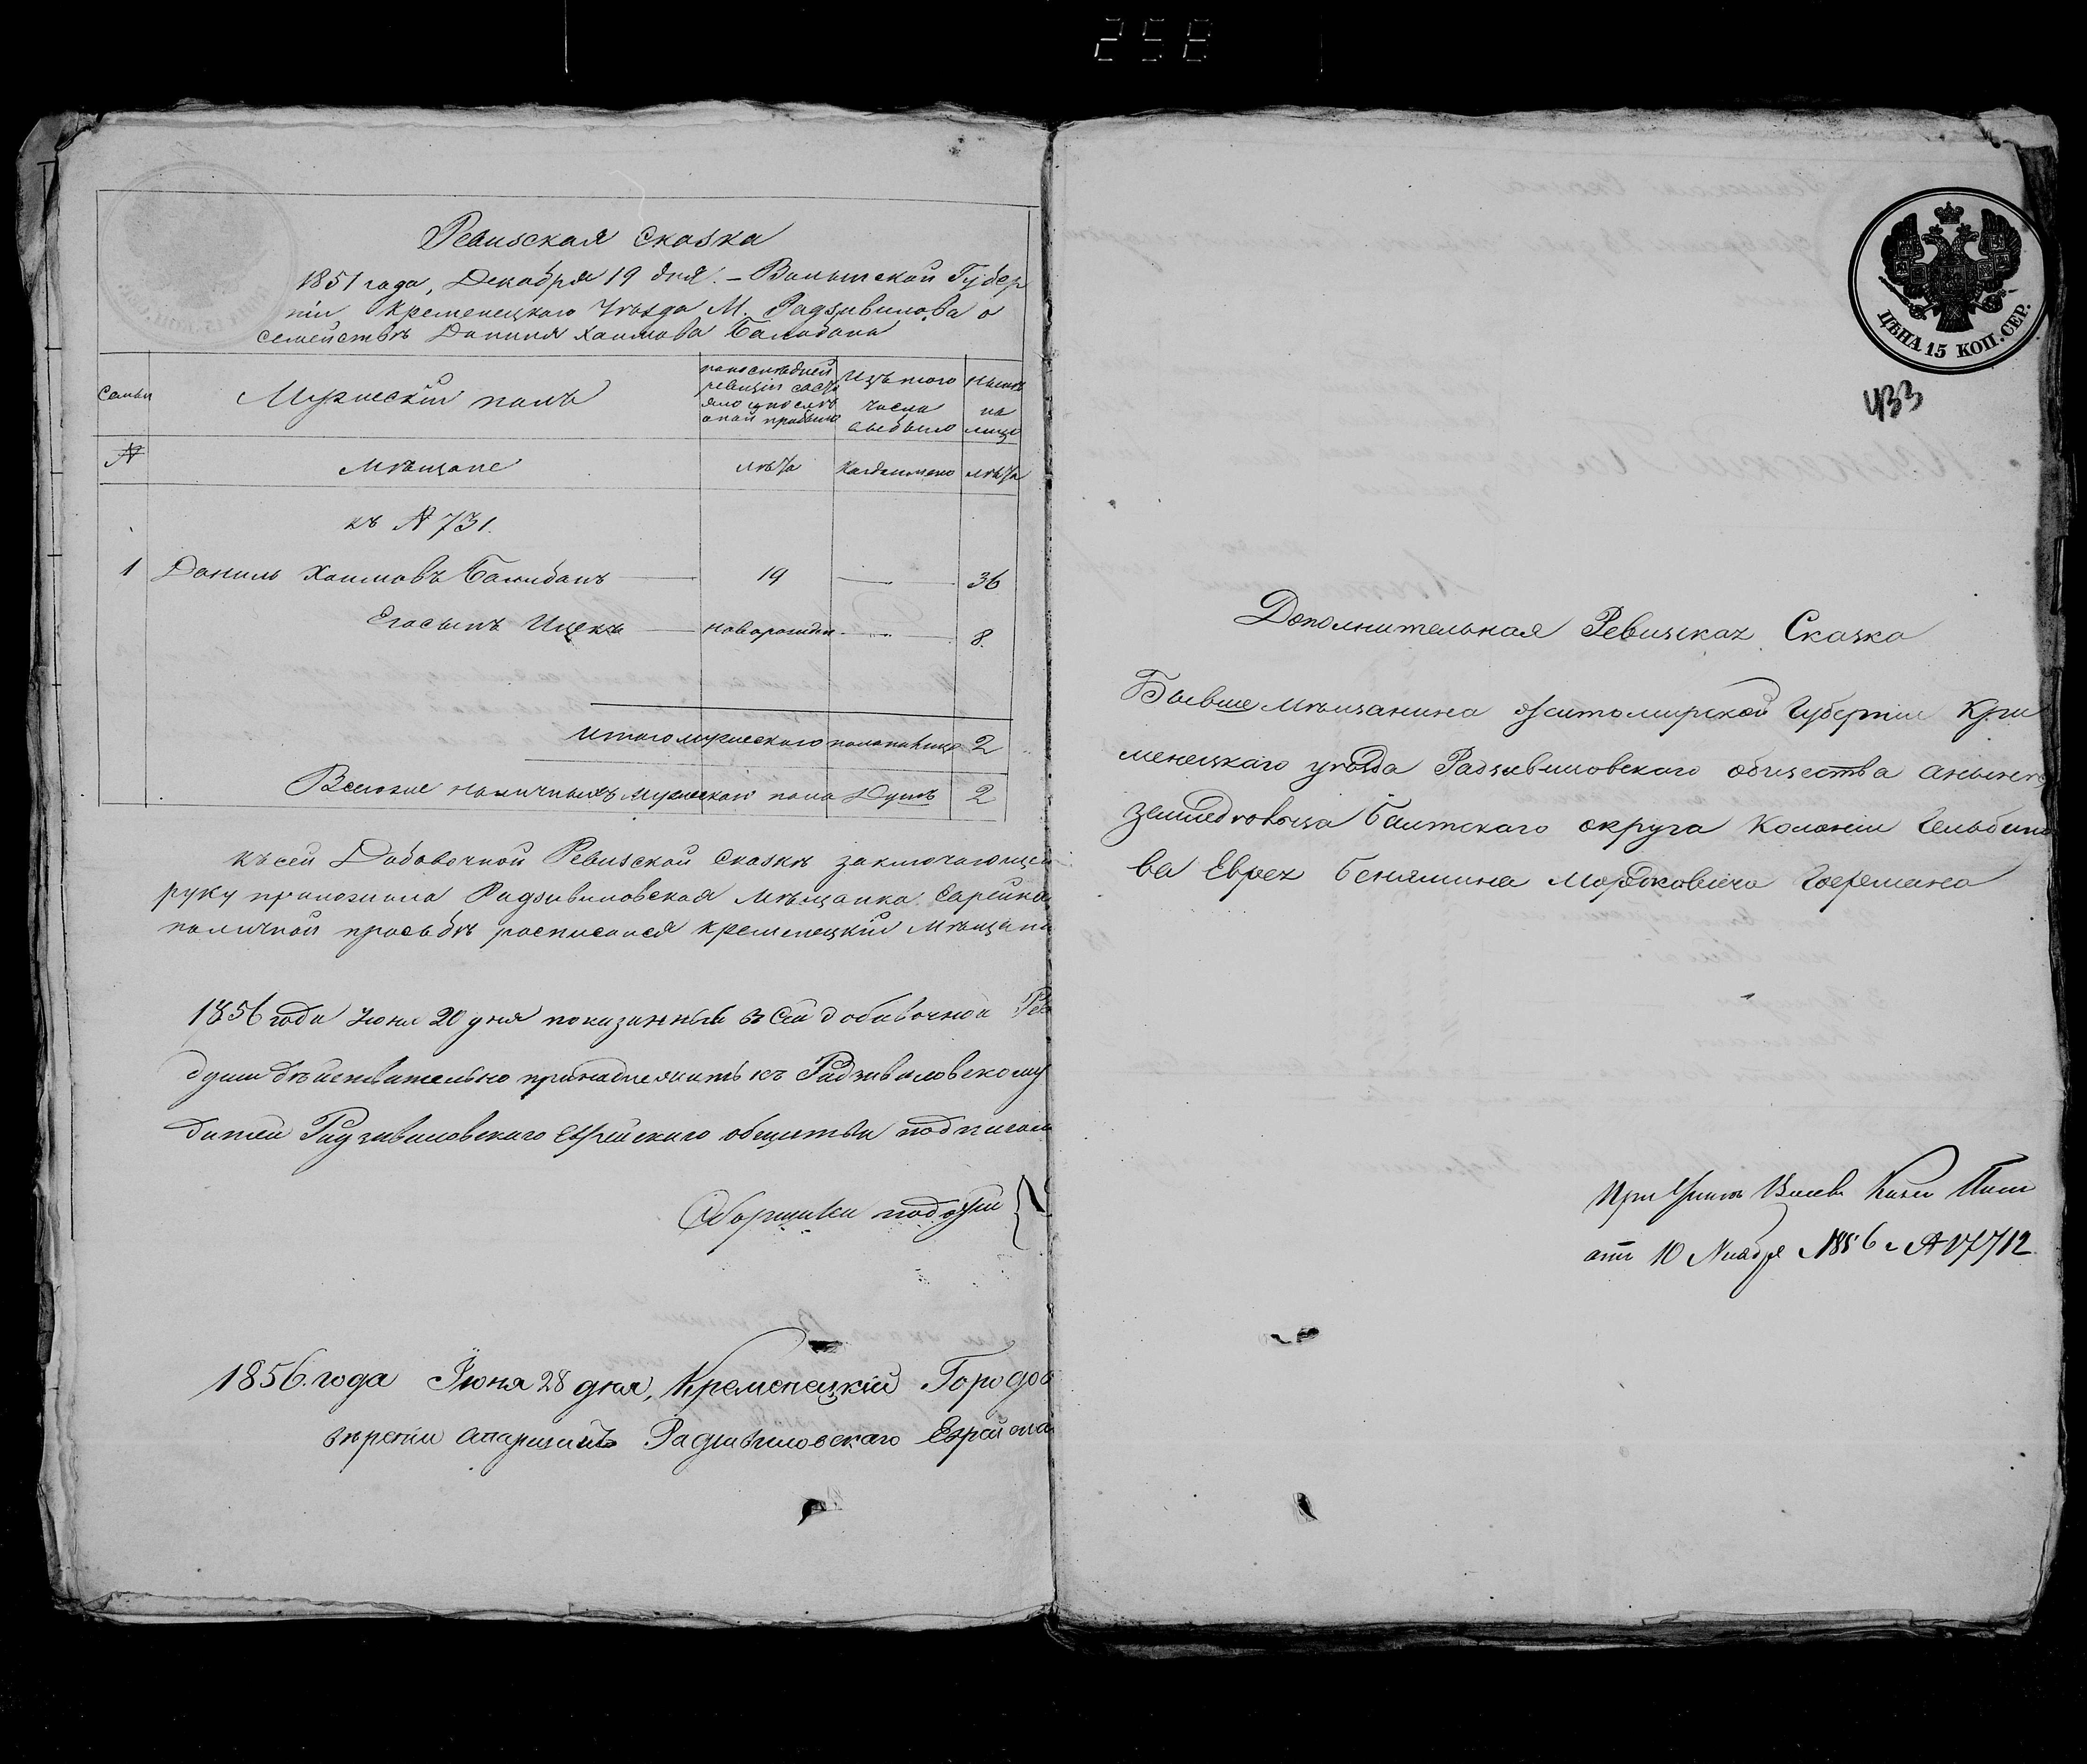 258
Ревизская Сказка
1851 года, Декабря 19 дня. – Волынской Губер
ніи Кременецкого Уѣзда М. Радзивилова о
семействѣ Даниля Хаимова Балабана
Семьи
Мужескій полъ
по последней ревизіи состояло и послѣ оной прибыло
Изъ того числа выбыло
Нынѣ на лицо
№
Мѣщане
лѣта
когда именно
лѣта
къ № 731.
1 Даниль Хаимовъ Балабанъ 19 36
Его сынъ Ицекъ новорожден. 8.
Итого мужескаго пола на лицо 2
Всего же наличныхъ мужескаго пола Душъ 2
Къ сей Добавочной Ревизской Сказкѣ заключающей
руку приложила Радзивиловская Мѣщанка
по личной просьбѣ росписался Кременецкій Мѣщани
1856 года Июня 20 дня показанный в Сей добавочной Рев
души действительно принадлежитъ къ Радзивиловскому
Радзивиловскаго Еврейскаго общества подписом
Сборщики податей
1856. года Іюня 28 дня, Кременецкій Городов
Радзивиловскаго Еврейска
ЦѢНА 15 КОП. СЕР.
433
Дополнительная Ревизская Сказка
Бывше мѣщанина Житомирской Губерніи Кре
менецкаго уѣзда Радзивиловскаго общества а нынѣ
земледѣльца Балтскаго округа Колоніи
ва Еврея Бениамина Мордковича Германа
При Казен Палат
отъ 10 Ноября 1856 г. № 17712